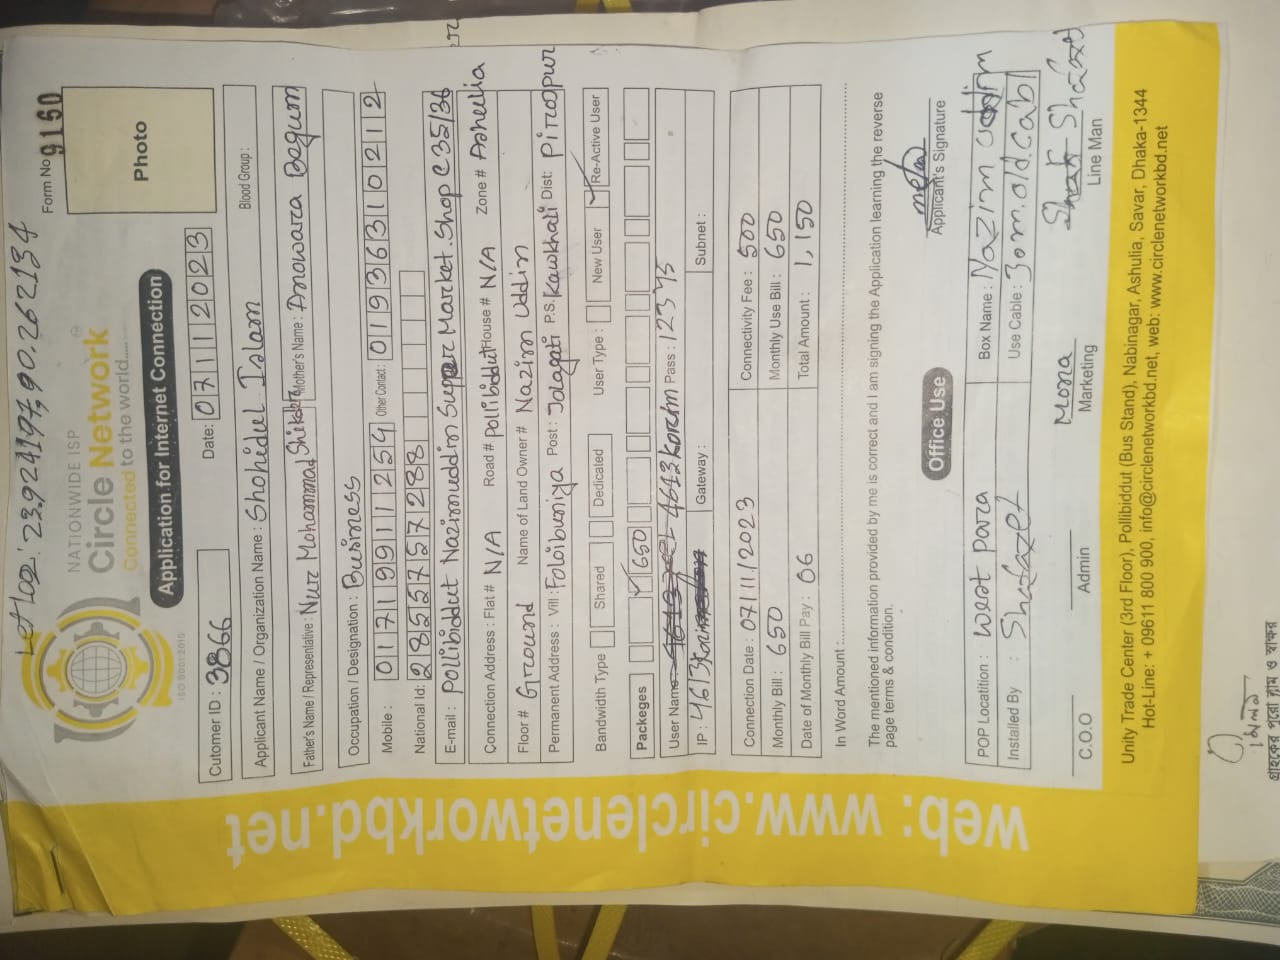 Let Loc: 23.924197,90.262134
NATIONWIDE ISP
Circle Network
Connected to the world.....
ISO 9001:2015
Form No 9160
Photo
Application for Internet Connection
Cutomer ID : 3866 Date: 07112023
Applicant Name / Organization Name : Shohidul Islam Blood Group:
Father's Name / Representative : Nurr Mohammad Mother's Name : Anowara Begum
Occupation / Designation : Business
Mobile : 01719911259 Other Contact : 01936310212
National Id: 2855757288
E-mail : Pollibiddut Nazimuddin Super Market. Shop C35/36
Connection Address : Flat # N/A Road # Polibiddut House # N/A Zone # Ashulia
Floor # Ground Name of Land Owner # Nazim Uddin
Permanent Address : Vill : Foloibuniya Post : Jolagati P.S: Kawkhali Dist: Piroopur
Bandwidth Type Shared Dedicated User Type : New User Re-Active User
Packeges 650
User Name Pass : 12345
IP : Gateway : Subnet :
Connection Date : 07/11/2023 Connectivity Fee : 500
Monthly Bill : 650 Monthly Use Bill : 650
Date of Monthly Bill Pay : 06 Total Amount : 1,150
In Word Amount :
The mentioned information provided by me is correct and I am signing the Application learning the reverse
page terms & condition.
Applicant's Signature
Office Use
POP Locatition : West Para Box Name : Nazim uddin
Installed By : Shafaet Use Cable : 30m.old.cabl
Mona
C.O.O Admin Marketing Line Man
Unity Trade Center (3rd Floor), Pollibiddut (Bus Stand), Nabinagar, Ashulia, Savar, Dhaka-1344
Hot-Line: + 09611 800 900, info@circlenetworkbd.net, web: www.circlenetworkbd.net
web: www.circlenetworkbd.net
গ্রাহকের পুরো নাম ও স্বাক্ষর